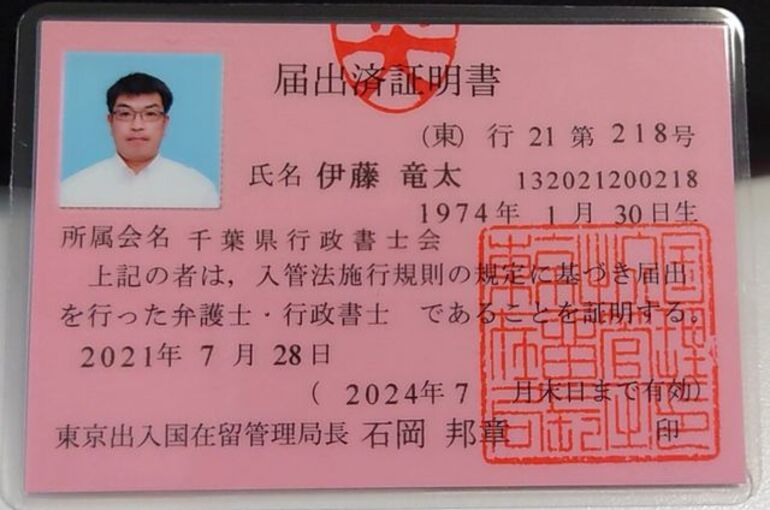 届出済証明書
(東) 行 21 第 218号
氏名 伊藤 竜太 132021200218
1974年 1月 30日生
所属会名 千葉県行政書士会
上記の者は，入管法施行規則の規定に基づき届出
を行った弁護士・行政書士 であることを証明する。
2021年 7月 28日
( 2024年 7 月末日まで有効)
東京出入国在留管理局長 石岡 邦章 印